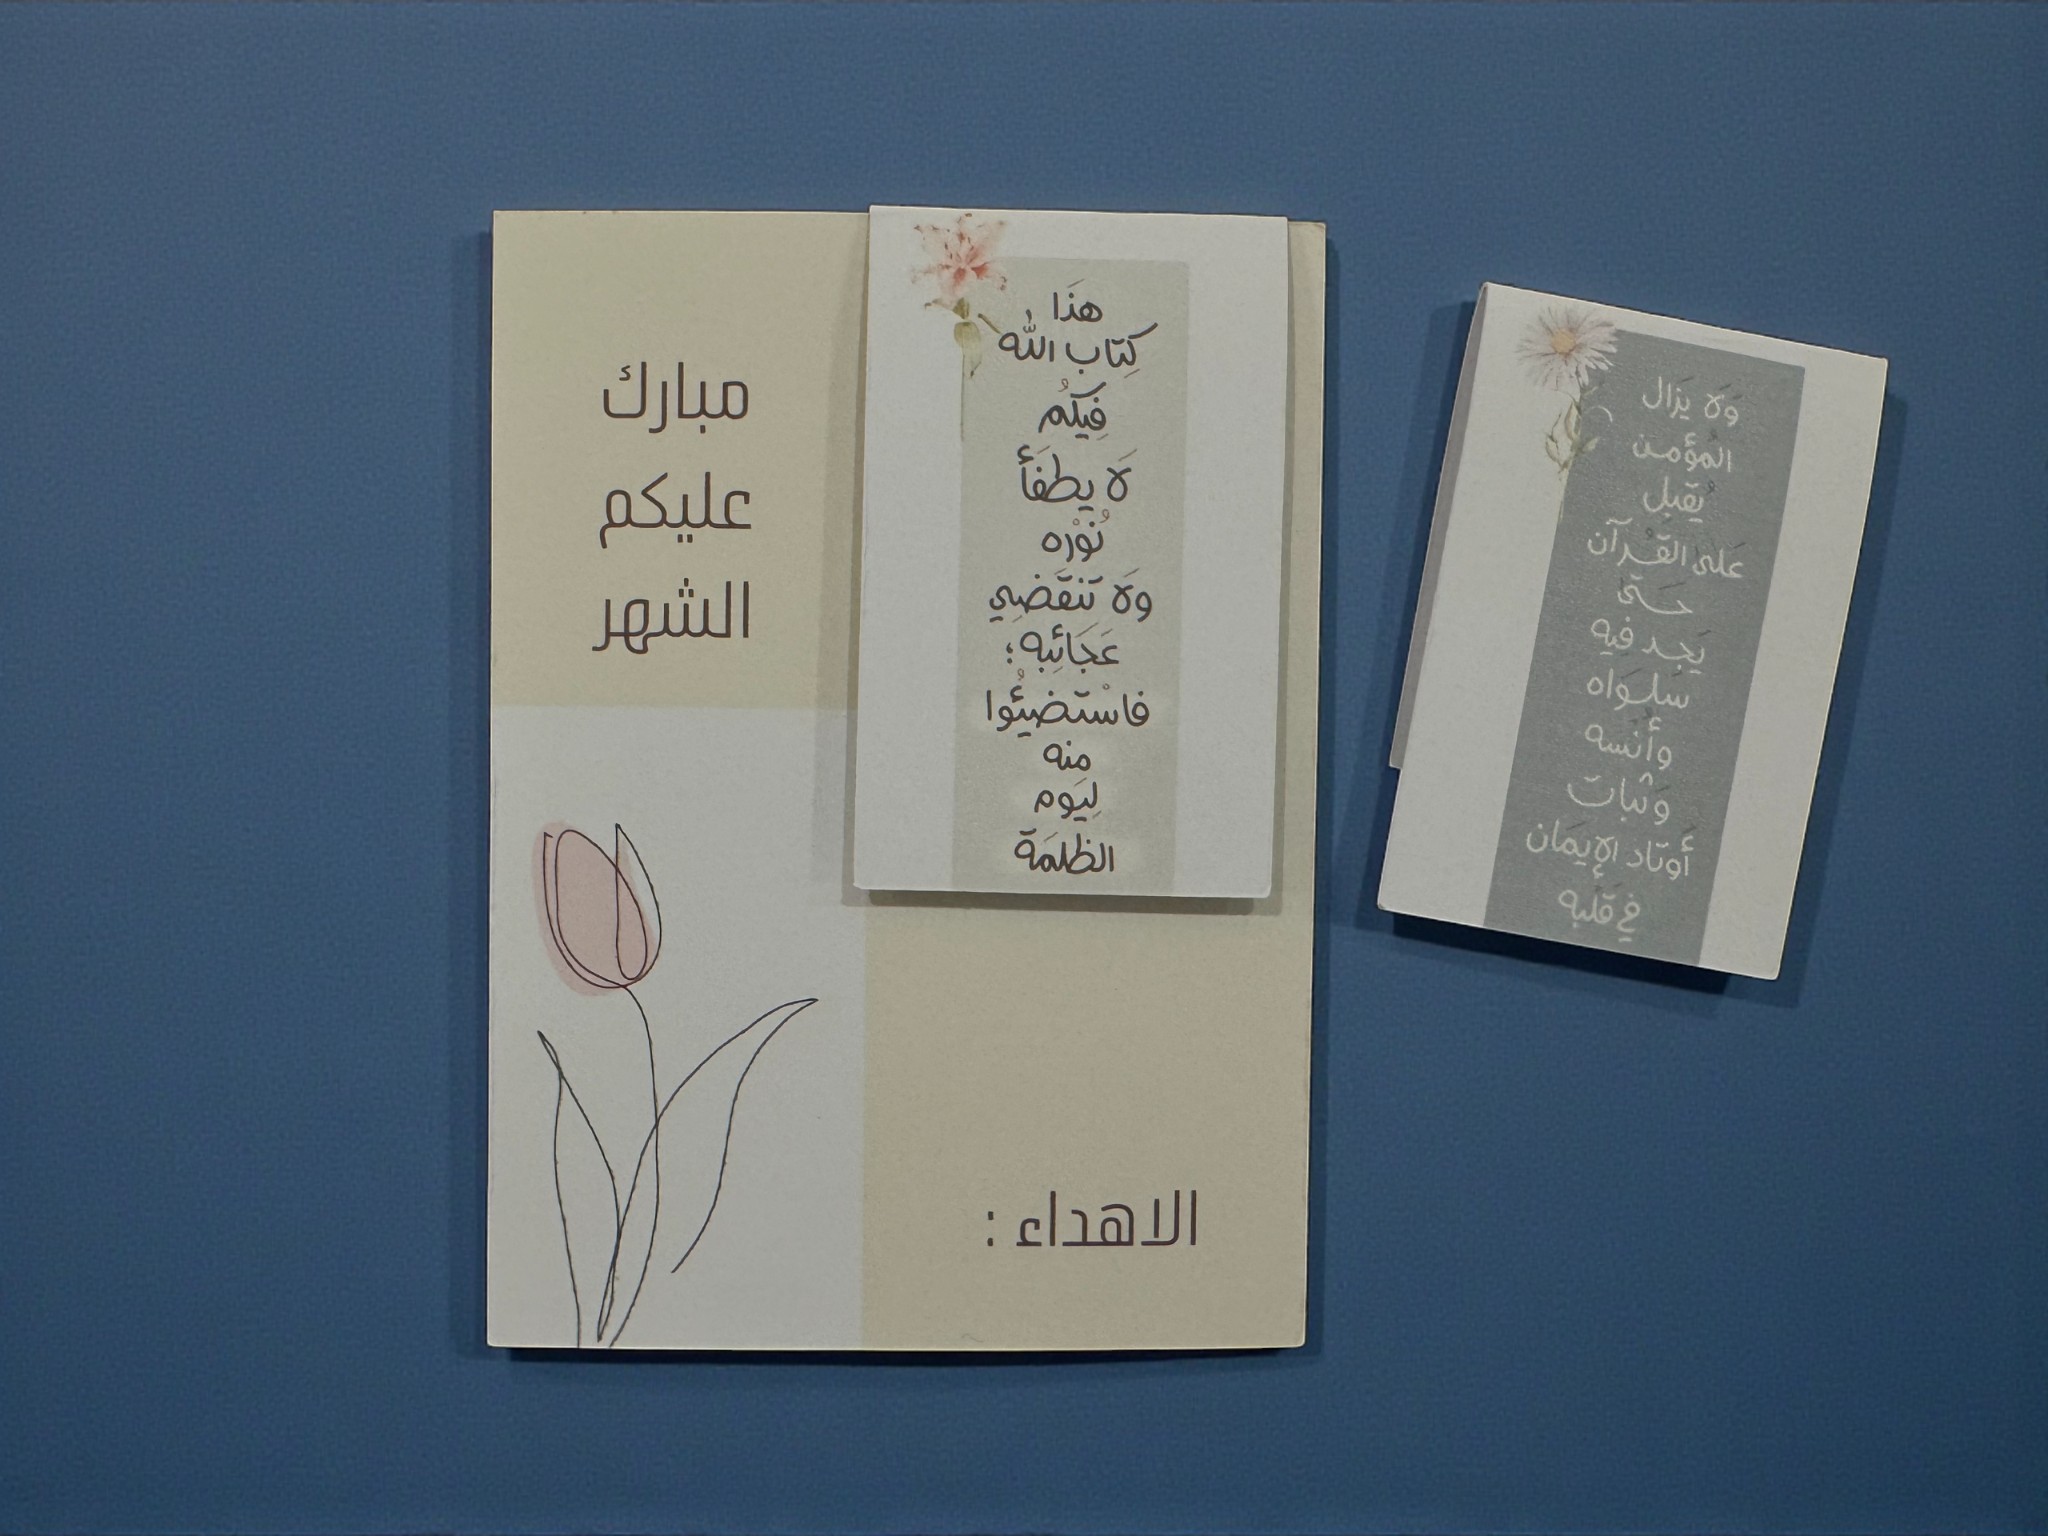 مبارك
عليكم
الشهر
الاهداء :
هَذَا
كِتَاب الله
فِيكُم
لَا يطفَأ
نُوْرُه
وَلَا تَنقَضِي
عَجَائِبه؛
فاسْتضيْئُوا
منه
لِيَوم
الظلمَة
وَلَا يَزَال
المُؤمن
يُقبل
عَلى القُرآن
حَتى
يَجِد فِيه
سلوَاه
وأُنْسه
وَثبات
أَوتَاد الإيمَان
في قَلبه